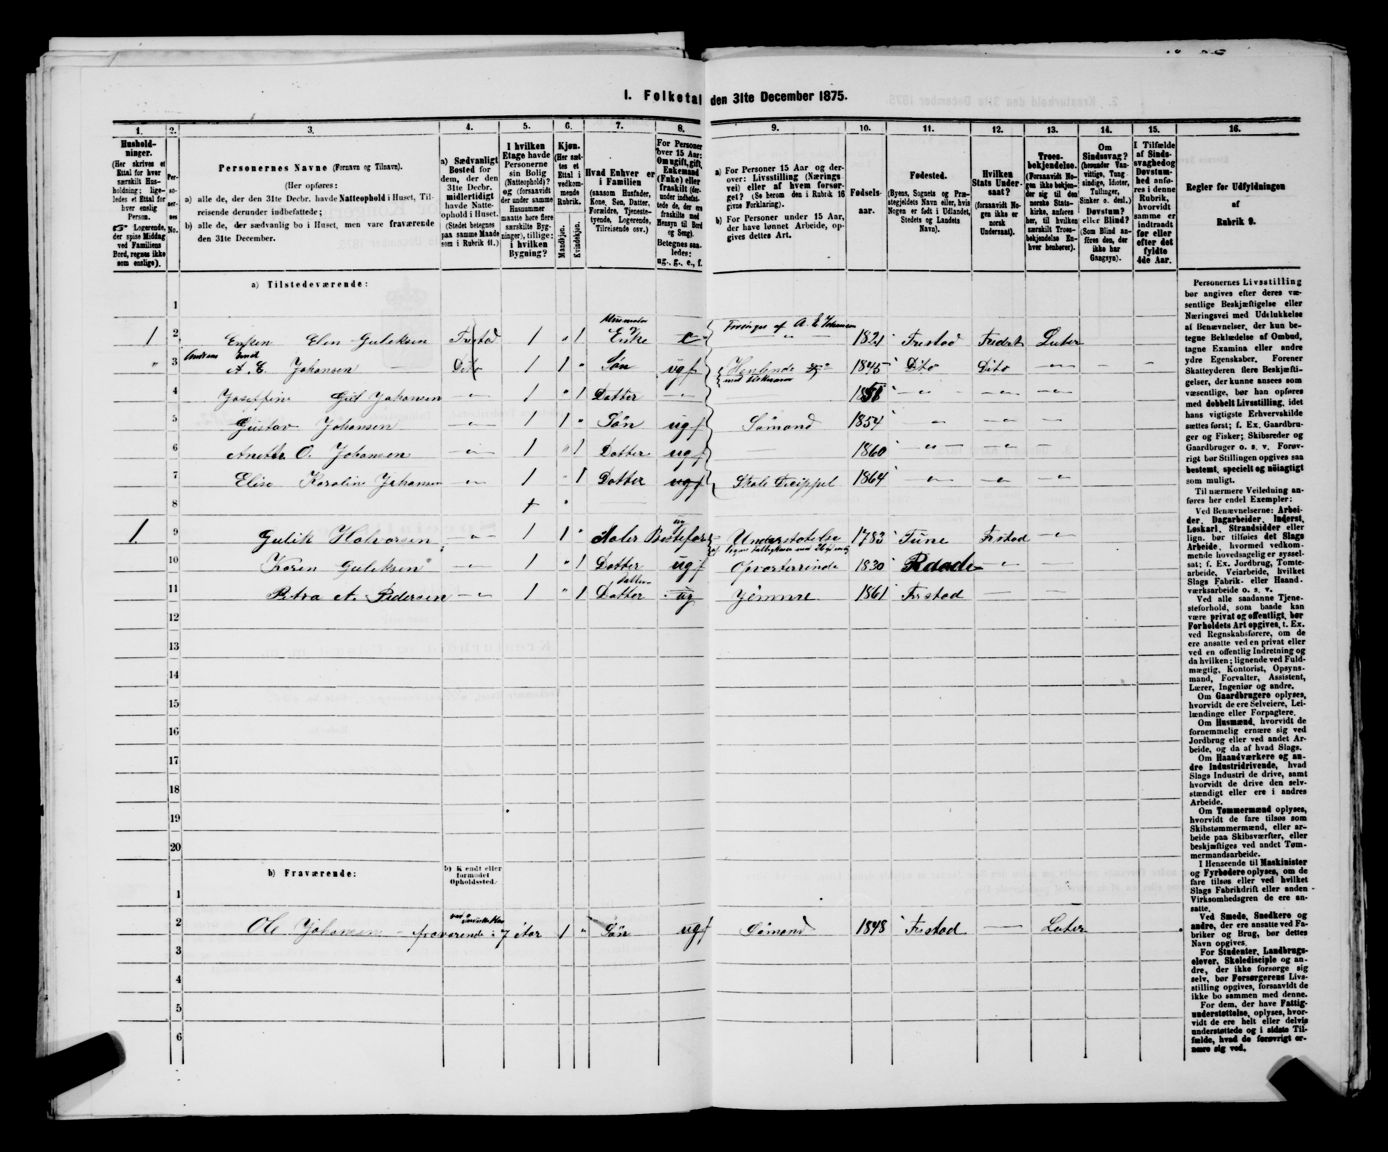 I. Folketal den 31te December 1875.
1. 2. 3. 4. 5. 6. 7. 8. 9. 10. 11. 12. 13. 14. 15. 16.
Hushold-
ninger.
(Her skrives et
Ettal for hver
særskilt Hus-
holdning; lige-
ledes et Ettal for
hver enslig
Person.
☞ Logerende,
der spise Middag
ved Familiens
Bord, regnes ikke
som enslige).
Per-
so-
ner-
nes
No.
Personernes Navne (Fornavn og Tilnavn).
(Her opføres:
a) alle de, der den 31te Decbr. havde Natteophold i Huset, Til-
reisende derunder indbefattede;
b) alle de, der sædvanlig bo i Huset, men vare fraværende
den 31te December.
a) Sædvanligt
Bosted for
dem, der den
31te Decbr.
midlertidigt
havde Natte-
ophold i Huset.
(Stedet betegnes
paa samme Maade
som i Rubrik 11.)
I hvilken
Etage havde
Personerne
sin Bolig
(Natteophold)?
og (forsaavidt
der under samme
Husnummer
maatte høre flere
særskilte Byg-
ninger, tillige:
i hvilken
Bygning?
Kjøn.
(Her sæt-
tes et
Ettal i
vedkom-
mende
Rubrik.
Mandkjøn. Kvindekjøn.
Hvad Enhver er
i Familien
(saasom Husfader,
Kone, Søn, Datter,
Forældre, Tjeneste-
tyende, Logerende,
Tilreisende osv.)
For Personer
over 15 Aar:
Om ugift, gift,
Enkemand
(Enke) eller
fraskilt (der-
under indbefat-
tede de, der ere
fraskilte med
Hensyn til Bord
og Seng).
Betegnes saa-
ledes:
ug., g., e., f.
a) For Personer 15 Aar og der-
over: Livsstilling (Nærings-
vei) eller af hvem forsør-
get? (Se herom den i Rubrik 16
givne Forklaring).
b) For Personer under 15 Aar,
der have lønnet Arbeide, op-
gives dettes Art.
Fødsels-
aar.
Fødested.
(Byens, Sognets og Præ-
stegjeldets Navn eller, hvis
Nogen er født i Udlandet,
Stedets og Landets
Navn).
Hvilken
Stats Under-
saat?
(forsaavidt No-
gen ikke er
norsk
Undersaat).
Troes-
bekjendelse.
(Forsaavidt No-
gen ikke bekjen-
der sig til den
norske Stats-
kirke, anføres
her, til hvilken
særskilt Troes-
bekjendelse En-
hver henhører).
Om
Sindssvag?
(herunder Van-
vittige, Tung-
sindige, Idioter,
Tullinger,
Sinker o. desl.)
Døvstum?
eller Blind?
(Som Blind an-
føres den, der
ikke har
Gangsyn).
I Tilfælde
af Sinds-
svaghed og
Døvstum-
hed anfø-
res i denne
Rubrik,
hvorvidt
samme er
indtraadt
før eller
efter det
fyldte
4de Aar.
Regler for Udfyldningen
af
Rubrik 9.
a) Tilstedeværende:
1
1 2 Elen Guleksen Fristad 1 " 1 Enke e Forsørges af A. E. Johansen 1821 Fristad Luter
" 3 A. E. Johansen Dito 1 " Søn ugf 1845 Dito Dito — —
4 Johansen — " 1 Datter — —
5 Gustav Johansen — 1 " Søn ugf Sømand 1854 — — —
6 O. Johansen — 1 " 1 Datter ugf 1860 — — —
7 Elise Karoline Johansen — 1 1 Datter ugf 1864 — — —
8 +
1 9 Gulik Halvorsen — 1 1 " ug Understøtelse 1783 Tune Fristad —
10 Karen Guleksen — " 1 Datter ugf Opvarterrinde 1830 — —
11 Petra A. Pedersen — 1 " 1 Datter datter ug Hjemme 1861 Fristad — —
12
13
14
15
16
17
18
19
20
b) Fraværende:
b) Kjendt eller
formodet
Opholdssted.
1
2 Ole Johansen fraværende i 7 1 " Søn ugf Sømand 1848 Fristad — Luter
3
4
5
6
Personernes Livsstilling
bør angives efter deres væ-
sentlige Beskjæftigelse eller
Næringsvei med Udelukkelse
af Benævnelser, der kun be-
tegne Beklædelse af Ombud,
tagne Examina eller andre
ydre Egenskaber. Forener
Skatteyderen flere Beskjæfti-
gelser, der kunne ansees som
væsentlige, bør han opføres
med dobbelt Livsstilling, idet
hans vigtigste Erhvervskilde
sættes først; f. Ex. Gaardbru-
ger og Fisker; Skibsreder og
Gaardbruger o. s. v. Forøv-
rigt bør Stillingen opgives saa
bestemt, specielt og nöiagtigt
som muligt.
Til nærmere Veiledning an-
føres her endel Exempler:
Ved Benævnelserne: Arbei-
der, Dagarbeider, Inderst,
Løskarl, Strandsidder eller
lign. bør tilføies det Slags
Arbeide, hvormed vedkom-
mende hovedsagelig er syssel-
sat; f. Ex. Jordbrug, Tomte-
arbeide, Veiarbeide, hvilket
Slags Fabrik- eller Haand-
værksarbeide o. s. v.
Ved alle saadanne Tjene-
steforhold, som baade kan
være privat og offentligt, bør
Forholdets Art opgives, t. Ex.
ved Regnskabsførere, om de
ere ansatte ved en privat eller
ved en offentlig Indretning og
da hvilken; lignende ved Fuld-
mægtig, Kontorist, Opsyns-
mand, Forvalter, Assistent,
Lærer, Ingeniør og andre.
Om Gaardbrugere oplyses,
hvorvidt de ere Selveiere, Lei-
lændinge eller Forpagtere.
Om Husmænd, hvorvidt de
fornemmelig ernære sig ved
Jordbrug eller ved andet Ar-
beide, og da af hvad Slags.
Om Haandværkere og an-
dre Industridrivende, hvad
Slags Industri de drive, samt
hvorvidt de drive den selv-
stændigt eller ere i andres
Arbeide.
Om Tømmermænd oplyses,
hvorvidt de fare tilsøs som
Skibstømmermænd, eller ar-
beide paa Skibsværfter, eller
beskjæftiges ved andet Tøm-
mermandsarbeide.
I Henseende til Maskinister
og Fyrbødere oplyses, om de
fare tilsøs eller ved hvilket
Slags Fabrikdrift eller anden
Virksomhedsgren de ere an-
satte.
Ved Smede, Snedkere og
andre, der ere ansatte ved Fa-
briker og Brug, bør dettes
Navn opgives.
For Studenter, Landbrugs-
elever, Skoledisciple og an-
dre, der ikke forsørge sig
selv, bør Forsørgerens Livs-
stilling opgives, forsaavidt de
ikke bo sammen med denne.
For dem, der have Fattig-
understøttelse, oplyses, hvor-
vidt de ere helt eller delvis
understøttede og i sidste Til-
fælde, hvad de forøvrigt er-
nære sig ved.